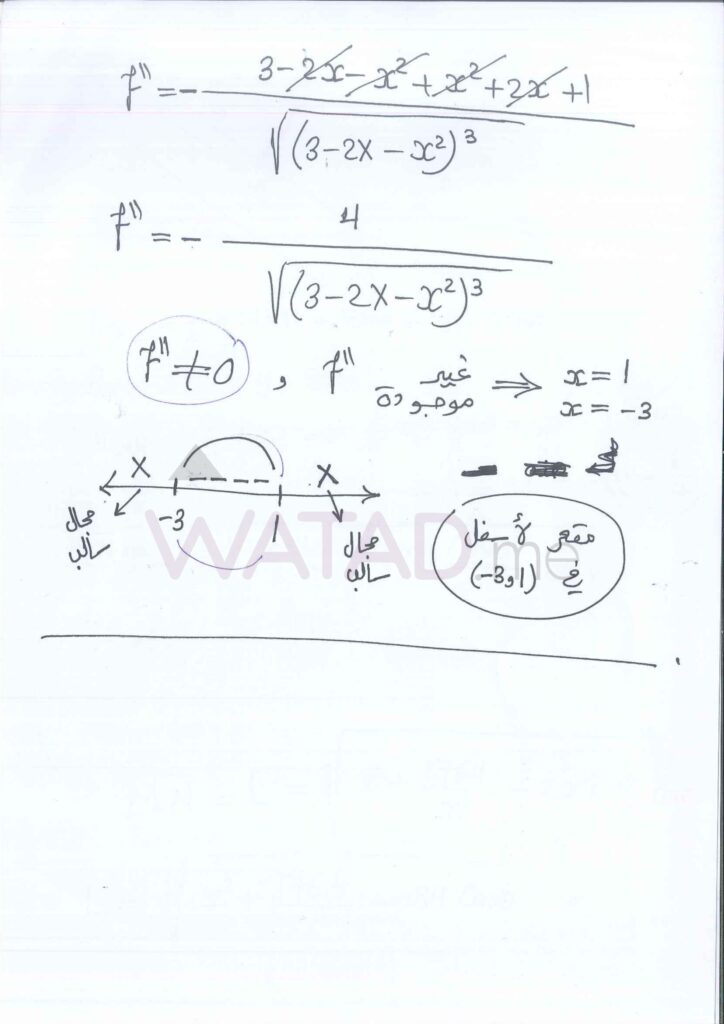 f'' = - (3 - 2x - x² + x² + 2x + 1) / √((3 - 2x - x²)³)
f'' = - 4 / √((3 - 2x - x²)³)
f'' ≠ 0 , f'' غير موجودة ⇒ x = 1
x = -3
x x
-3 1
مجال سالب
مجال سالب
مقعر لأسفل
في (-3 و 1)
WATAD.me